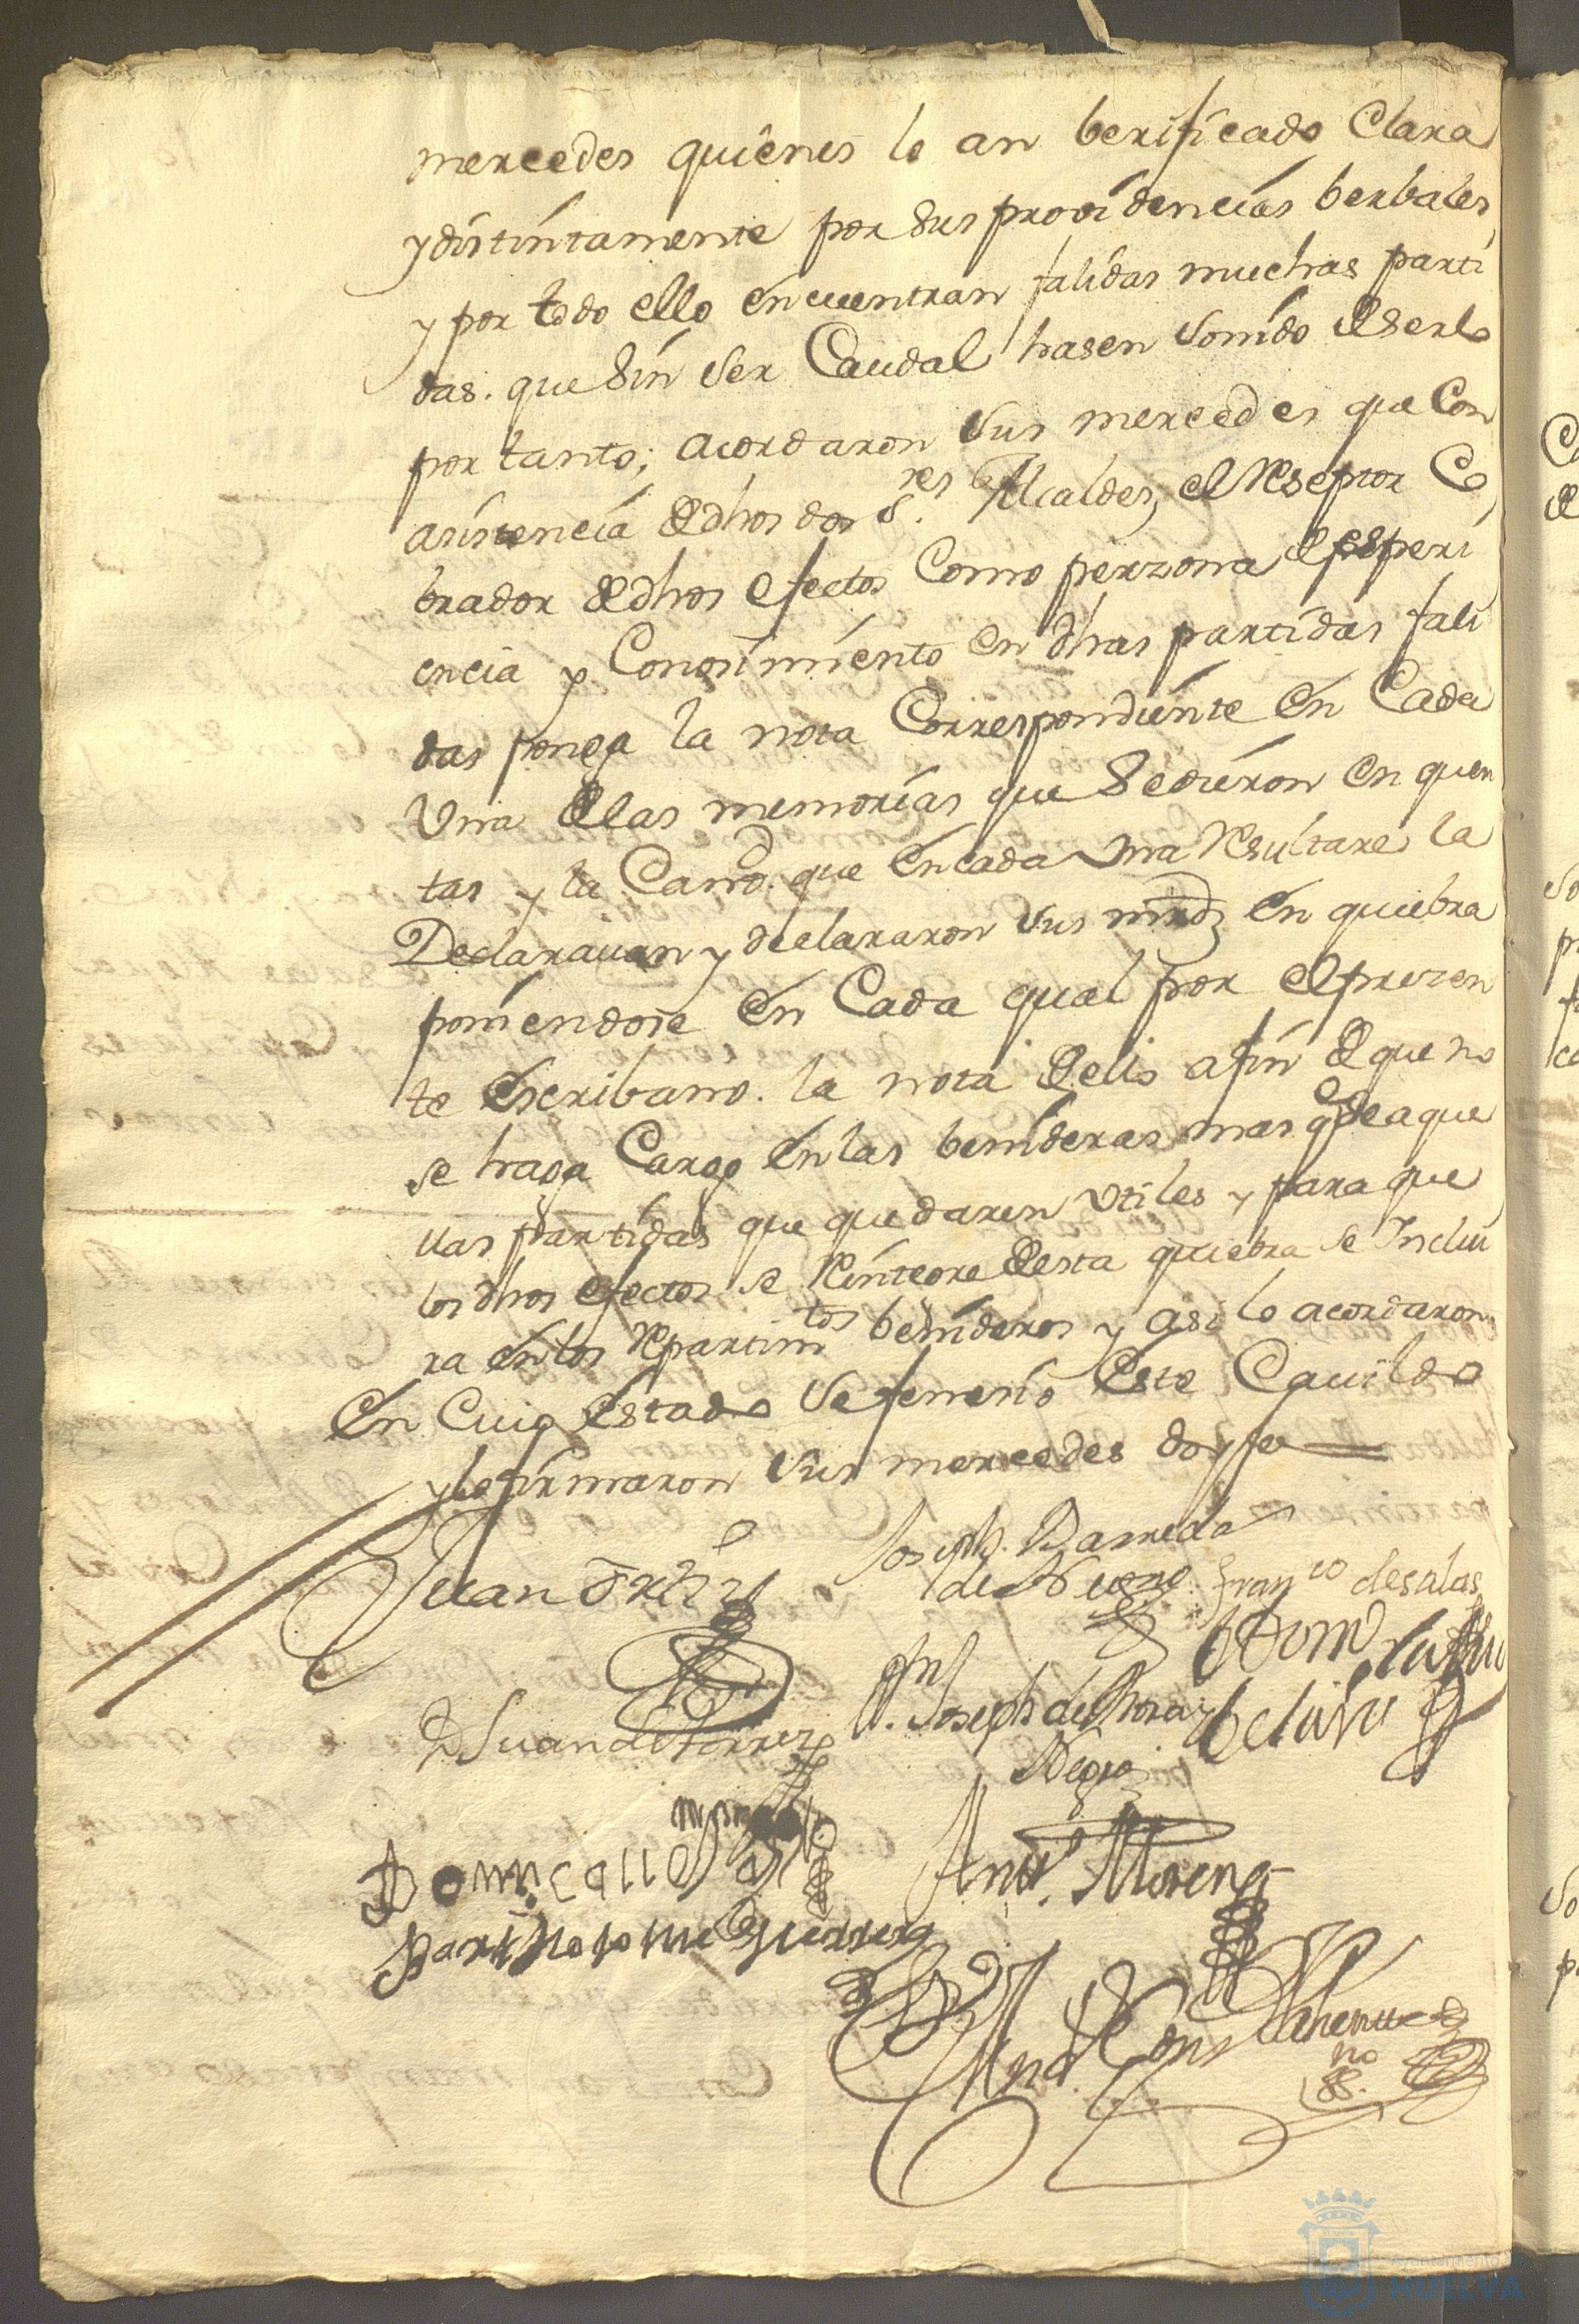 mercedes quienes lo an berificado Clara
y distintamente por sus providencias berbales
y por todo ello encuentran falidas muchas parti
das. que sin ser Caudal hasen sonido de serlo
por tanto; acordaron sus mercedes que Con
asistencia de dhos dos S.res Alcaldes, el Reseptor Co
brador de dhos efectos Como perzona de esperi
encia y Conosimiento en dhas partidas fali
das ponga la nota Correspondiente en Cada
Una de las memorias que se dieron en quen
tas y la Cantd. que en cada una Resultare la
Declaravan y declararon sus mrds en quiebra
poniendose en Cada qual por el prezen
te escribano. la nota de ello afin de que no
se haga Cargo en las benideras mas q de aque
llas partidas que quedaren utiles y para que
los dhos efectos se Rintegre de esta quiebra se Inclui
ra en los Repartimtos benideros y asi lo acordaron
en Cuio estado se fenesio este Cavildo
y lo firmaron sus mercedes doy fee
Juan Ortiz
Joseph. Barreda
Franco de salas
Joseph de Mora y
Negro
D Juan de torrez
Anto. Moreno
Bartholome Guerrero
HUELVA